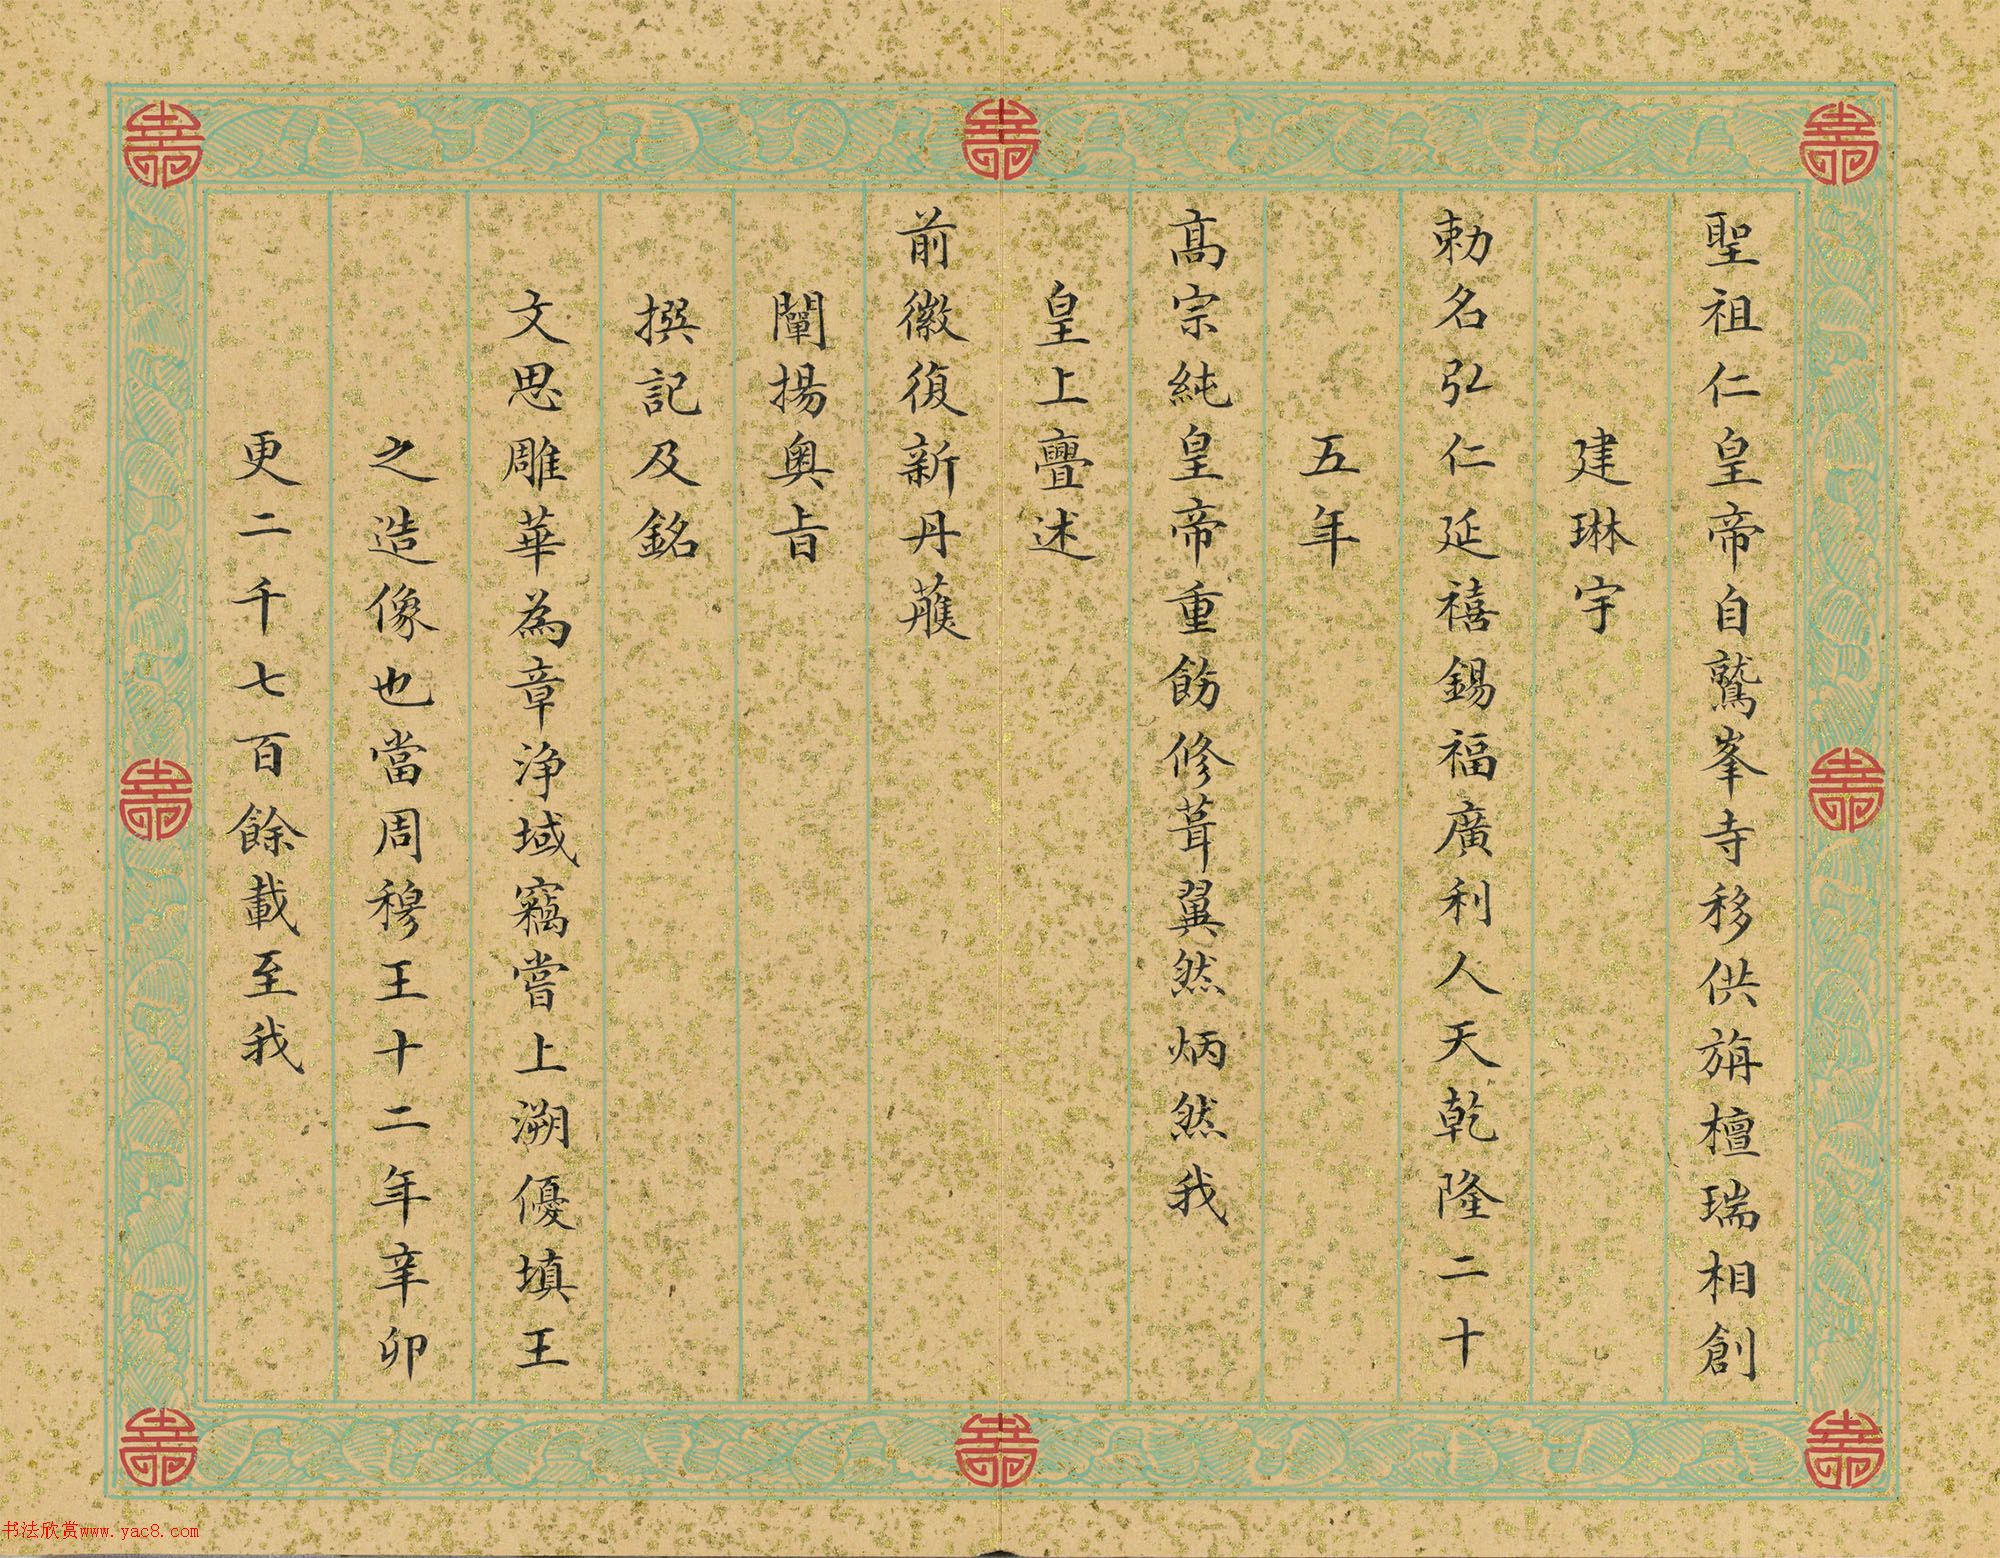 聖祖仁皇帝自鷲峯寺移供旃檀瑞相創
建琳宇
勅名弘仁延禧錫福廣利人天乾隆二十
五年
高宗純皇帝重飭修葺翼然炳然我
皇上亹述
前徽復新丹雘
闡揚奥旨
撰記及銘
文思雕華為章浄域竊嘗上溯優填王
之造像也當周穆王十二年辛卯
更二千七百餘載至我
书法欣赏www.yac8.com